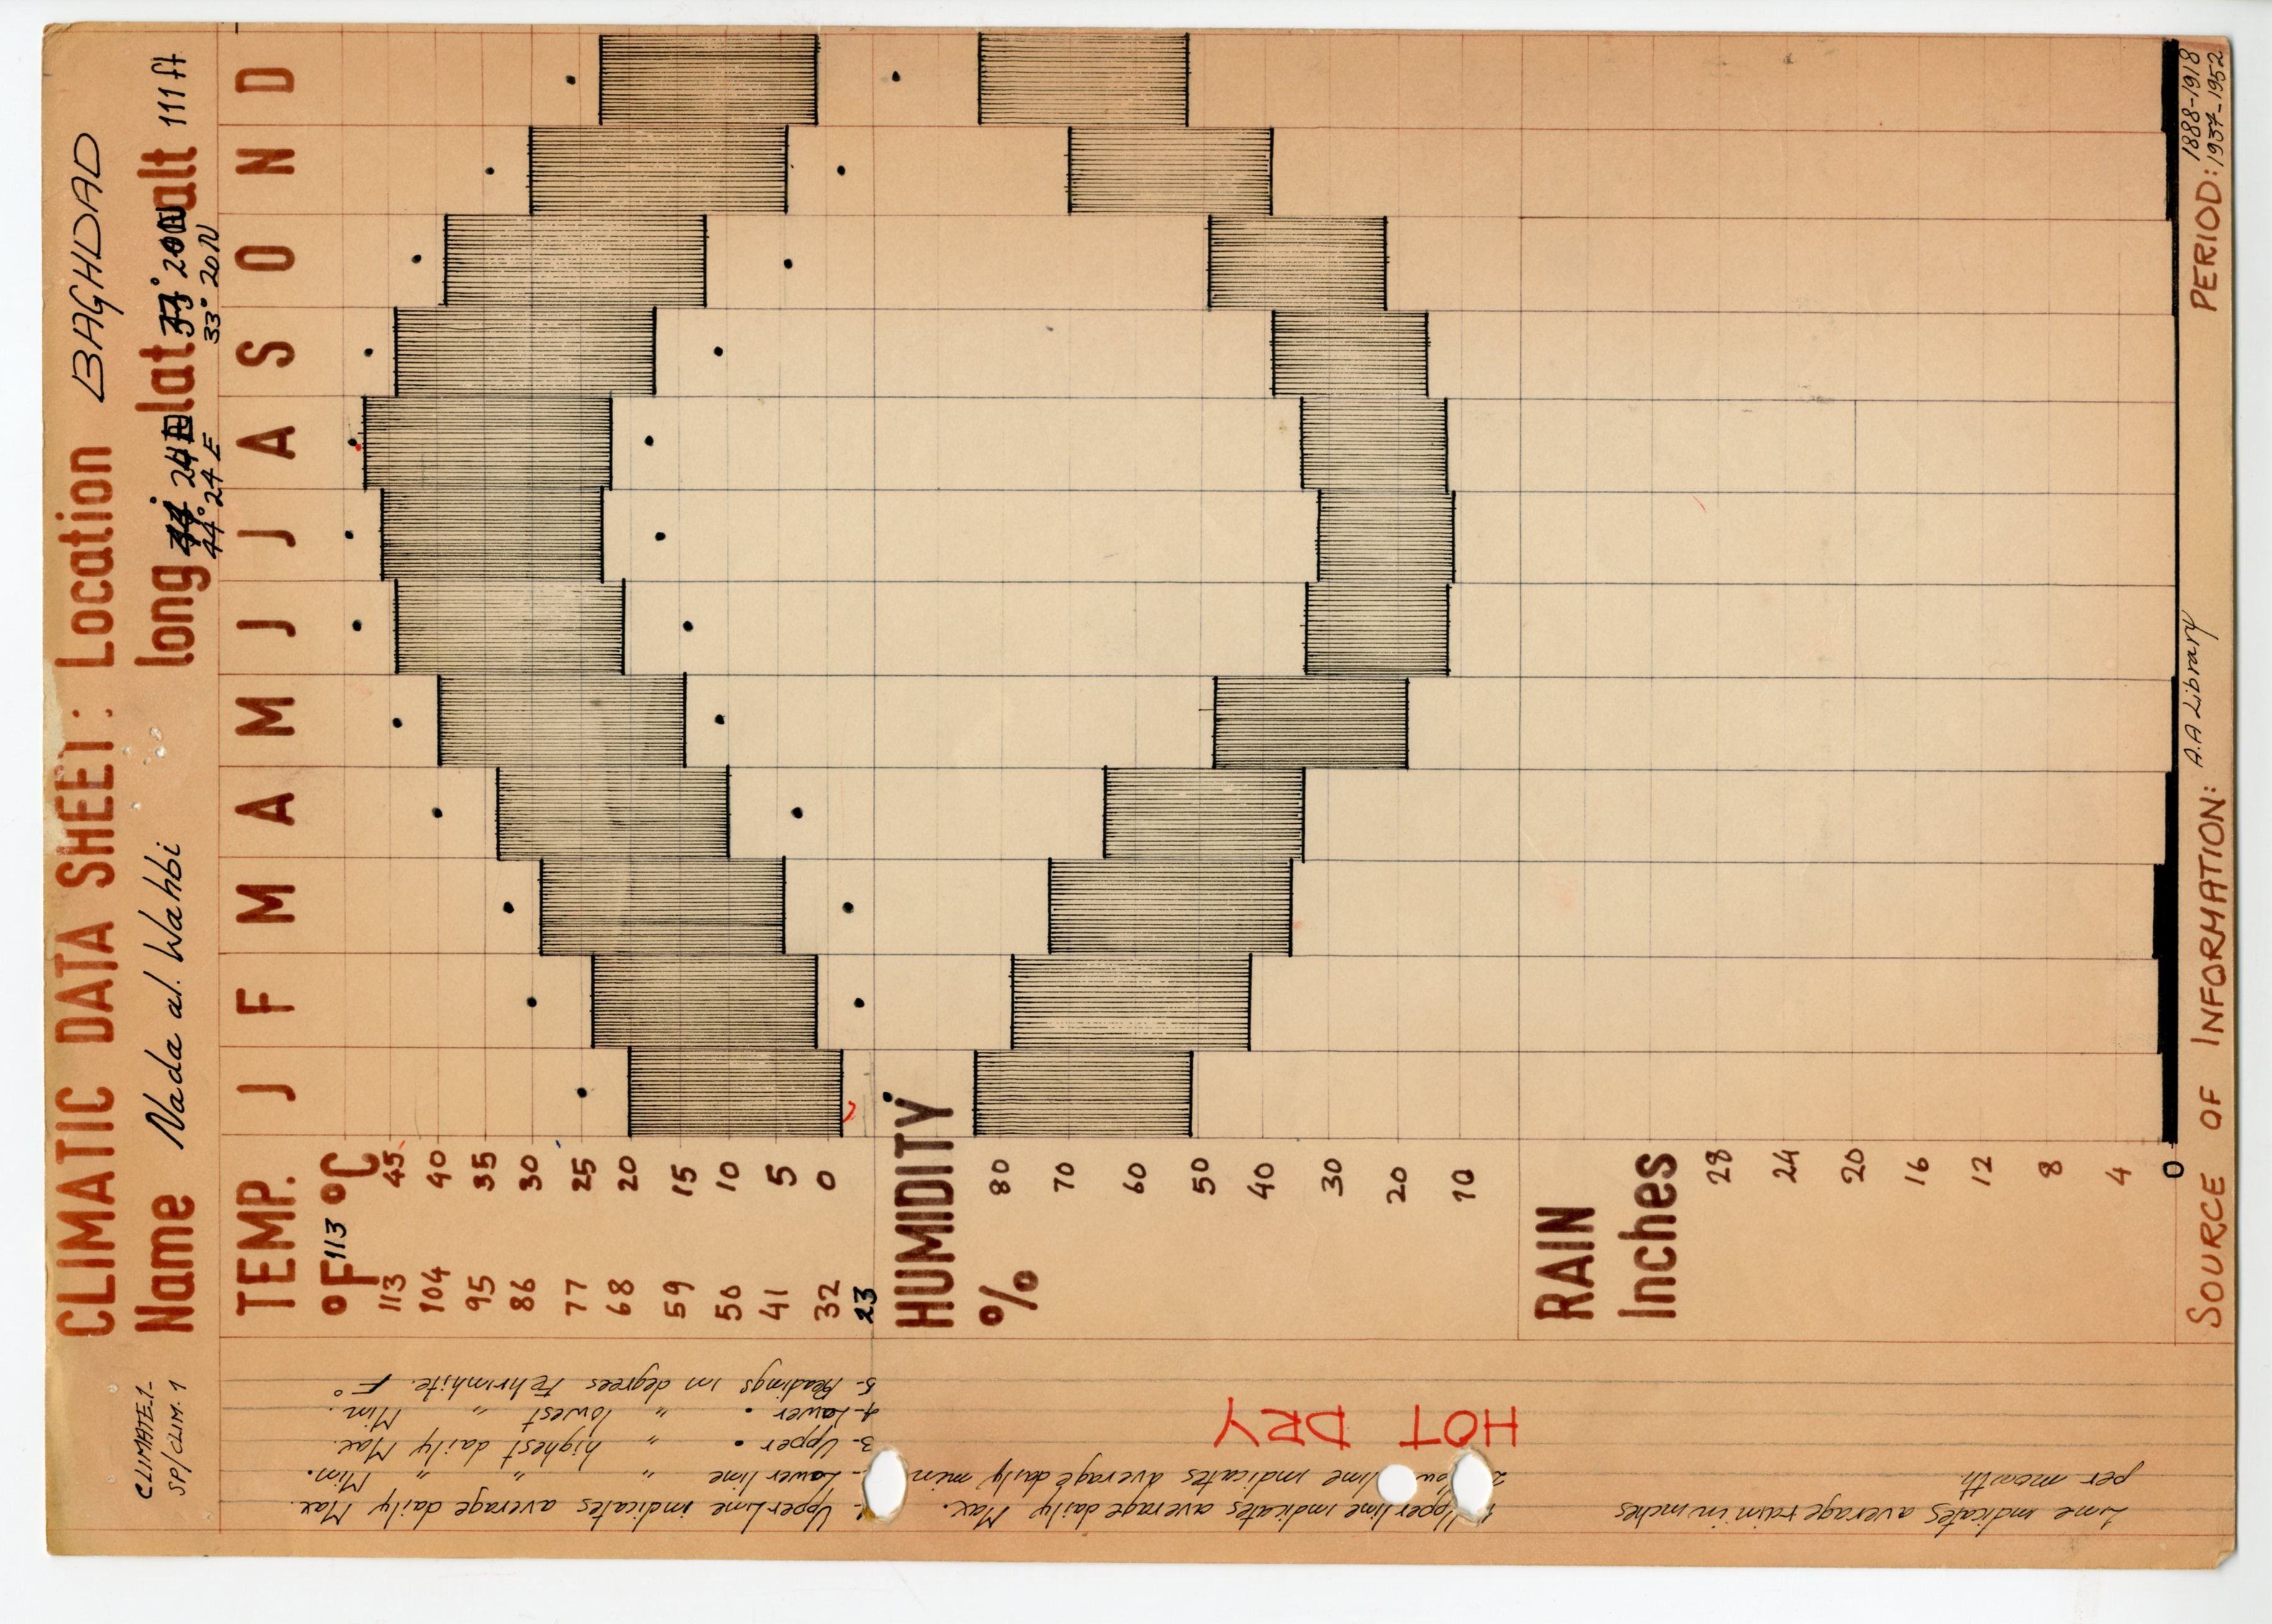 CLIMATIC DATA SHEET: Location BAGHDAD
Name Nada al. Wahbi long lat alt 111 ft
44° 24 E 33° 20 N
CLIMATE.1-
SP/CLIM. 1
TEMP. J F M A M J J A S O N D
°F 113 °C
113 45
104 40
95 35
86 30
77 25
68 20
59 15
50 10
41 5
32 0
23
HUMIDITY
%
80
70
60
50
40
30
20
10
RAIN
Inches
28
24
20
16
12
8
4
0
SOURCE OF INFORMATION: A.A Library PERIOD: 1888-1918
1937-1952
1- Upper line indicates average daily Max.
2- Lower line " " " Min.
3- Upper • " highest daily Max.
4- Lower • " lowest " Min.
5- Readings in degrees Fehrinhite. F°
1- Upper line indicates average daily Max.
line indicates average daily min
HOT DRY
Line indicates average rain in inches
per month